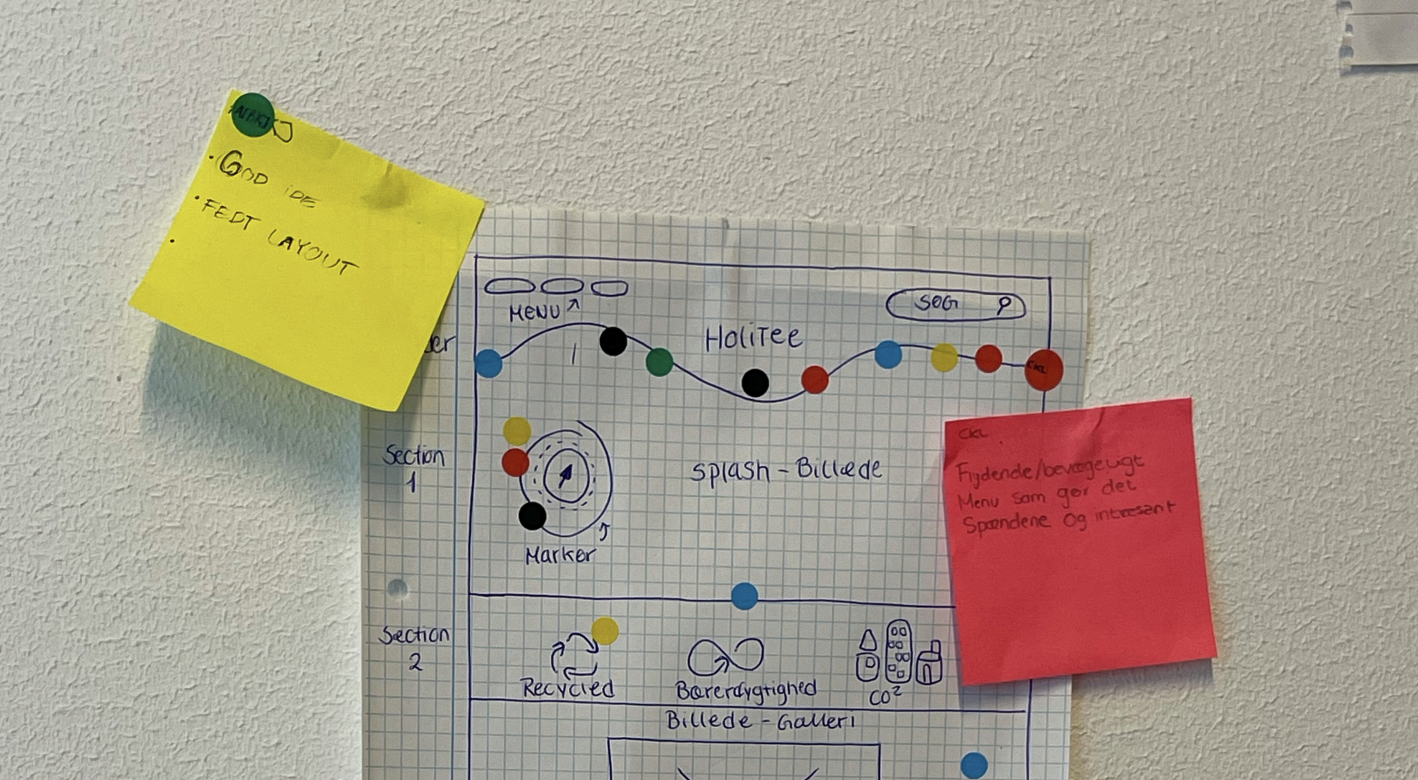 • GOD IDE
• FEDT LAYOUT
•
MENU
SØG
HoliTee
Section
1
Splash - Billede
Marker
CKL
CKL
Flydende/bevægeligt
Menu som gør det
Spændene og intresant
Section
2
Recycled
Bærerdygtighed
CO²
Billede - Galleri